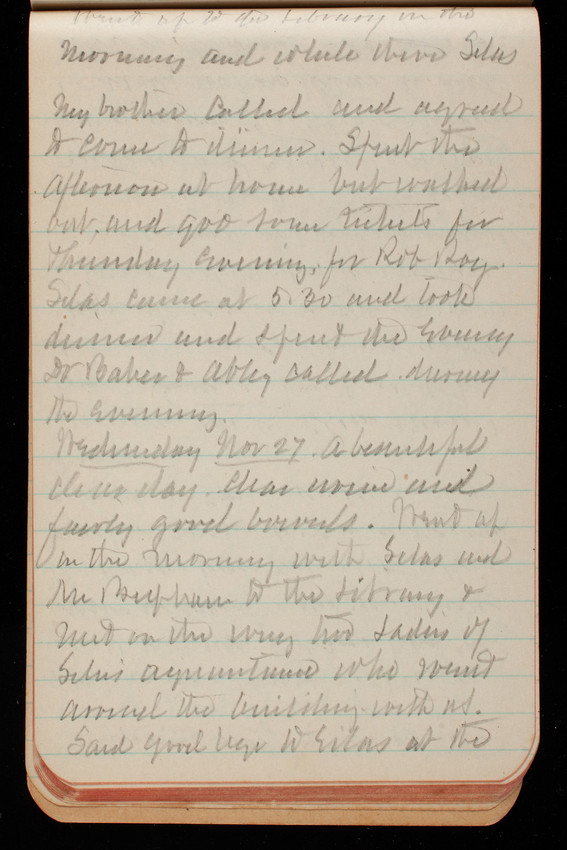 Went up to the Library in the
Morning and while there Silas
My brother called and agreed
to come to dinner. Spent the
afternoon at home but walked
out and got some tickets for
Thursday evening, for Rob Roy.
Silas came at 5.30 and took
dinner and spent the Evening
Dr Baker & Abby called during
the evening.
Wednesday Nov 27. A beautiful
clear day. Clear urine and
fairly good bowels. Went up
in the morning with Silas and
Mr to the Library &
met on the way two Ladies of
Silas acquaintance who went
around the building with us.
Said good bye to Silas at the